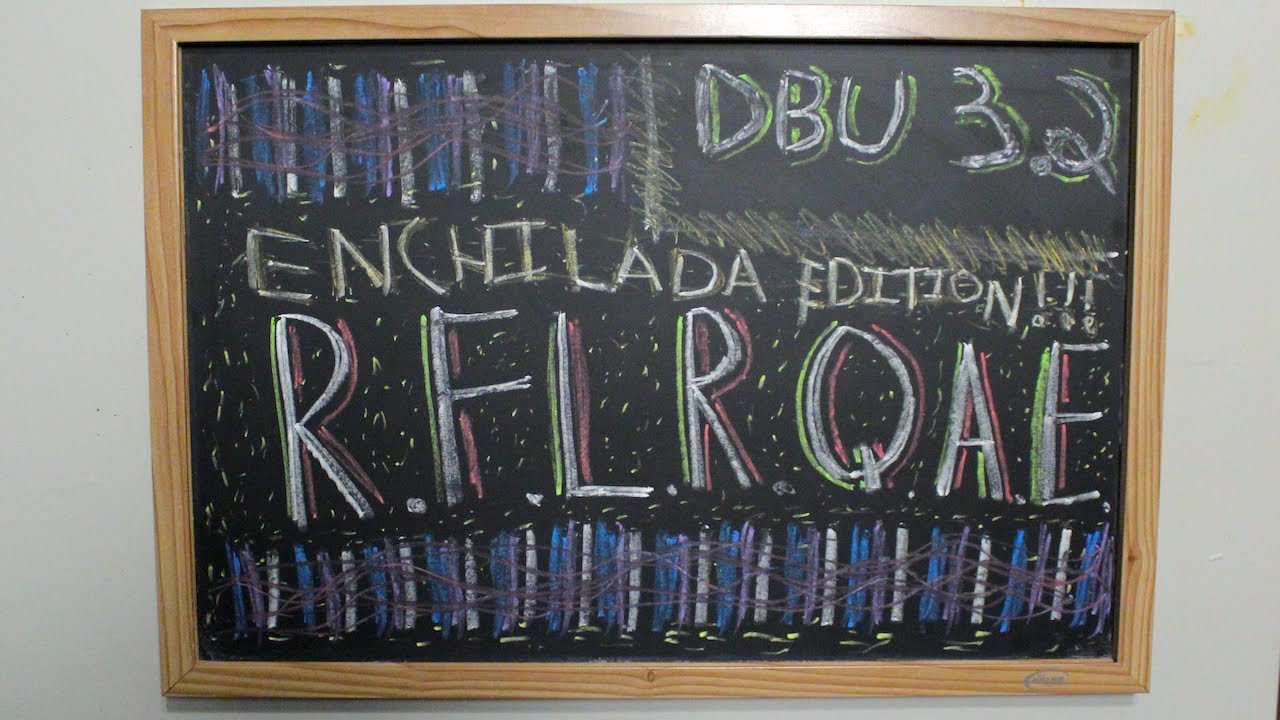 DBU 3.2
ENCHILADA EDITION!!!
R.F.L.R.Q.A.E